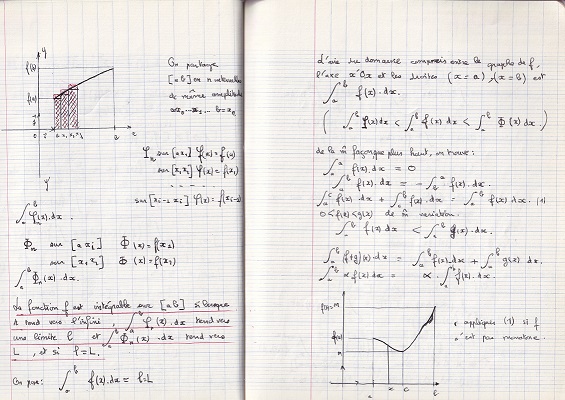 y
f(b)
f(a)
On partage
[a b] en n intervalles
de même amplitude
a=x₀...x₁... b=xₙ
φₙ sur [a x₁] φ(x)=f(a)
sur [x₁ x₂] φ(x)=f(x₁)
sur [xᵢ₋₁ xᵢ] φ(x)=f(xᵢ₋₁)
y'
∫ₐᵇ φₙ(x).dx.
Φₙ sur [a x₁] Φ(x)=f(x₁)
sur [x₁ x₂] Φ(x)=f(x₂)
∫ₐᵇ Φₙ(x).dx.
La fonction f est intégrable sur [a b] si lorsque
n tend vers l'infini, ∫ₐᵇ φₙ(x).dx tend vers
une limite l et ∫ₐᵇ Φₙ(x).dx tend vers
L, et si l=L.
On pose: ∫ₐᵇ f(x).dx = l=L
l'aire du domaine compris entre le graphe de f,
l'axe x'Ox et les droites (x=a), (x=b) est
∫ₐᵇ f(x).dx.
(∫ₐᵇ φ(x)dx < ∫ₐᵇ f(x)dx < ∫ₐᵇ Φ(x)dx.)
de la m̂ façon que plus haut, on trouve:
∫ₐᵃ f(x).dx = 0
∫ₐᵇ f(x).dx = -∫ᵇᵃ f(x).dx.
∫ₐᶜ f(x).dx + ∫ᶜᵇ f(x).dx = ∫ₐᵇ f(x)dx. (1)
0<f(x)<g(x) de m̂ variation.
∫ₐᵇ f(x)dx < ∫ₐᵇ g(x).dx.
∫ₐᵇ (f+g)(x)dx = ∫ₐᵇ f(x)dx + ∫ₐᵇ g(x)dx.
∫ₐᵇ αf(x)dx = α.∫ₐᵇ f(x)dx.
f(b)=M
f(a)
m
appliquer (1) si f
n'est pas monotone.
a c b